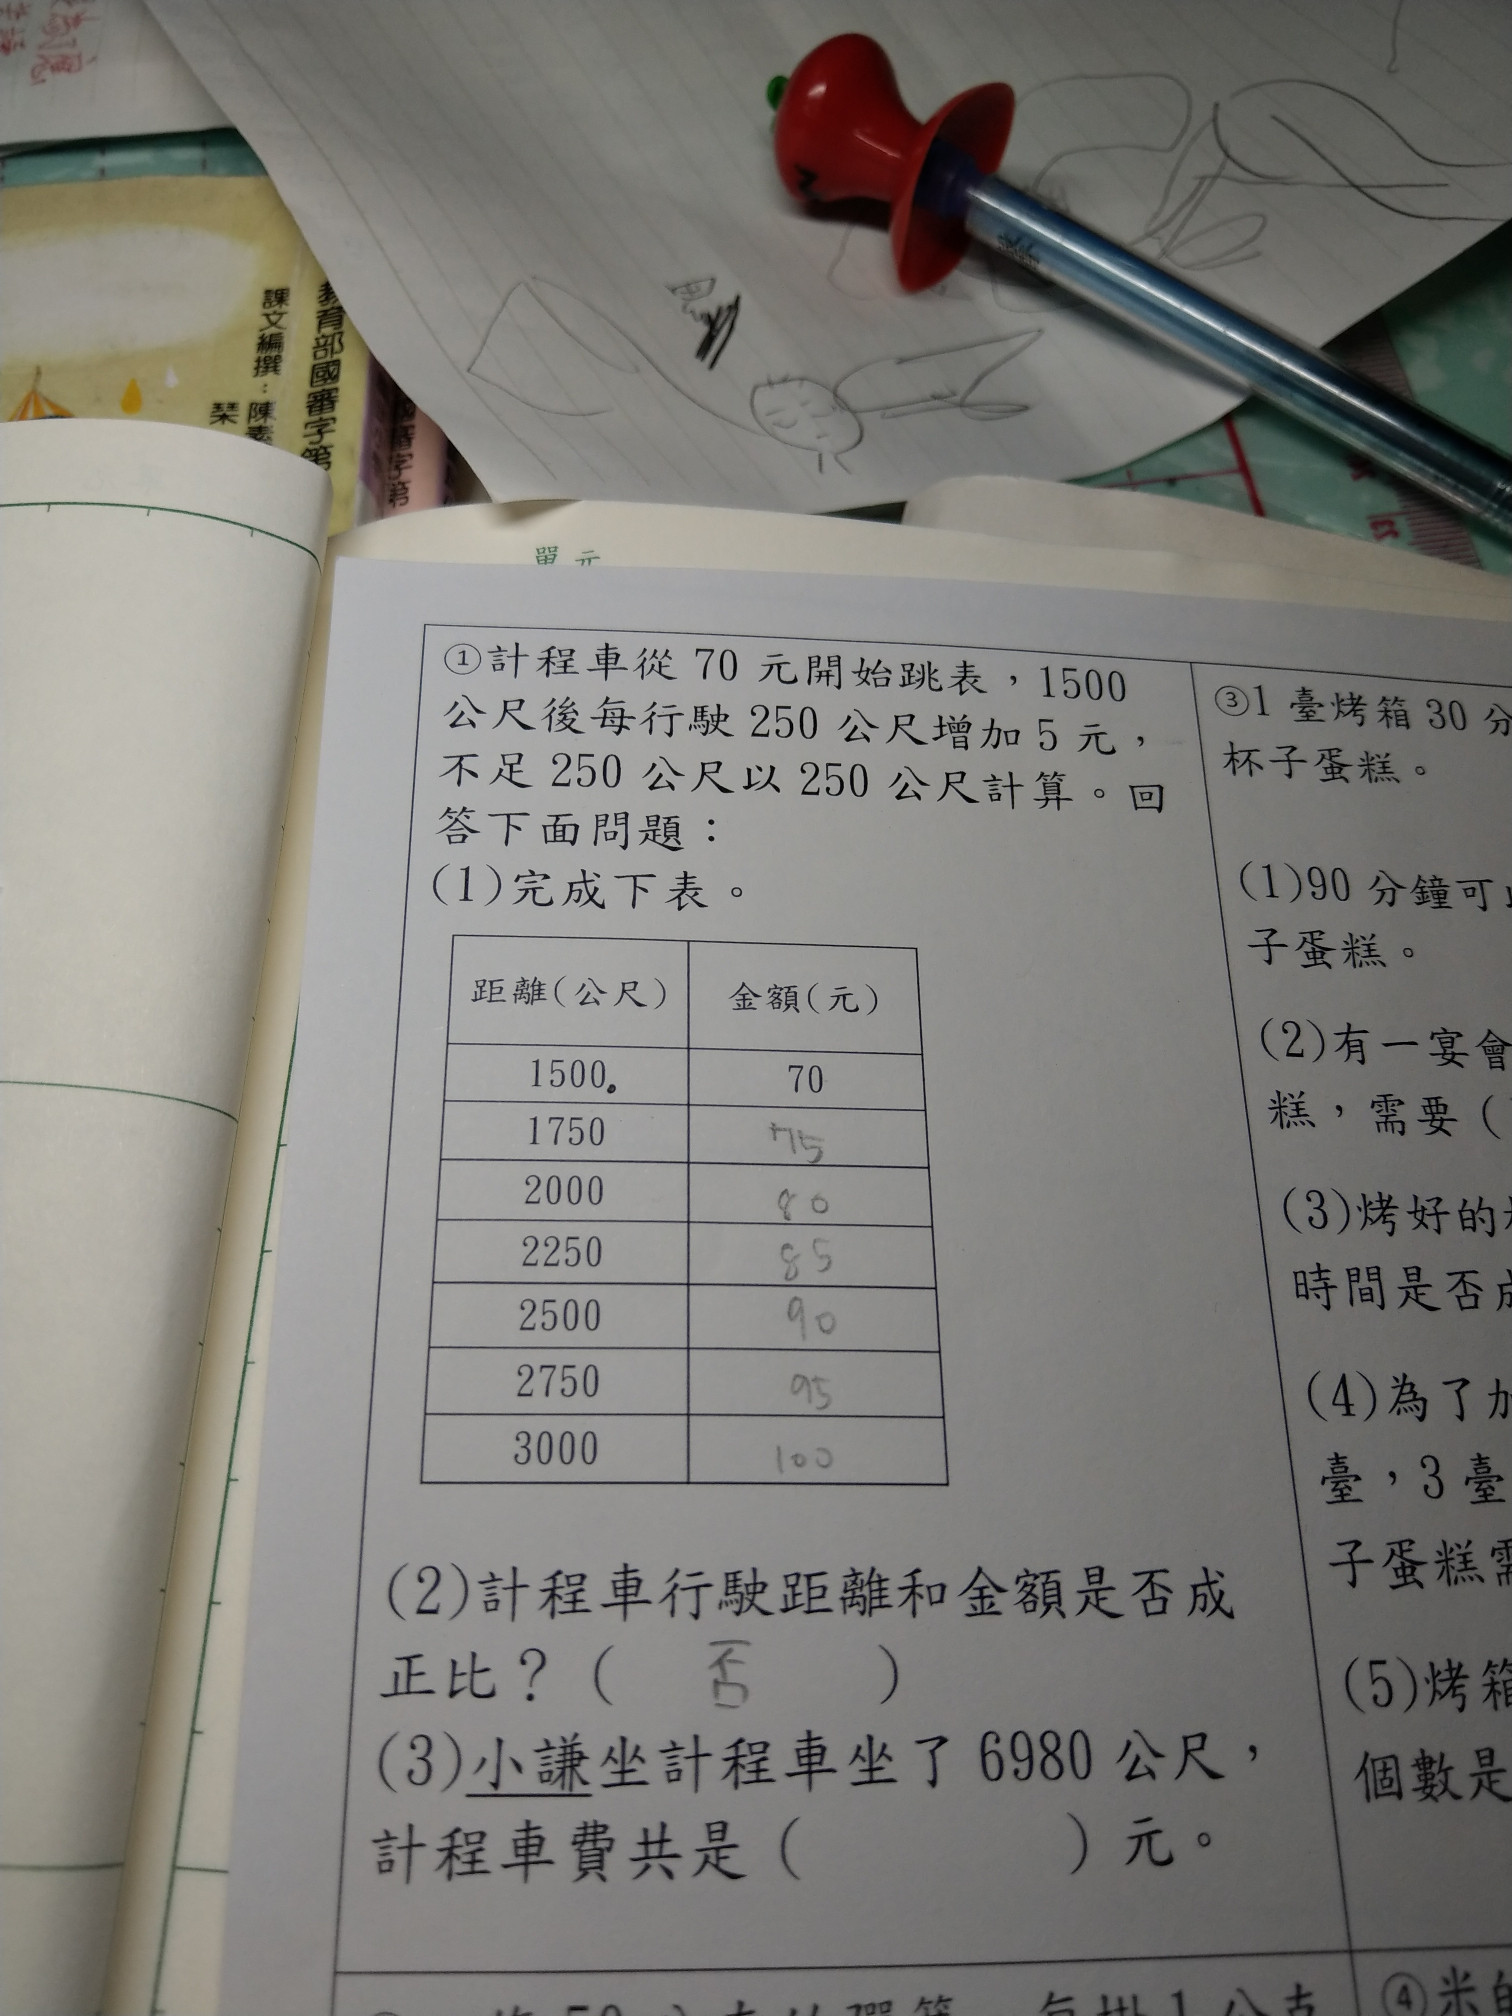 教育部國審字第
課文編撰：陳素
琹
國審字第
單元
①計程車從 70 元開始跳表，1500
公尺後每行駛 250 公尺增加 5 元，
不足 250 公尺以 250 公尺計算。回
答下面問題：
(1)完成下表。
距離(公尺) 金額(元)
1500 70
1750 75
2000 80
2250 85
2500 90
2750 95
3000 100
(2)計程車行駛距離和金額是否成
正比？( 否 )
(3)小謙坐計程車坐了 6980 公尺，
計程車費共是( )元。
③1 臺烤箱 30 分
杯子蛋糕。
(1)90 分鐘可
子蛋糕。
(2)有一宴會
糕，需要(
(3)烤好的
時間是否
(4)為了
臺，3 臺
子蛋糕
(5)烤箱
個數是
④米